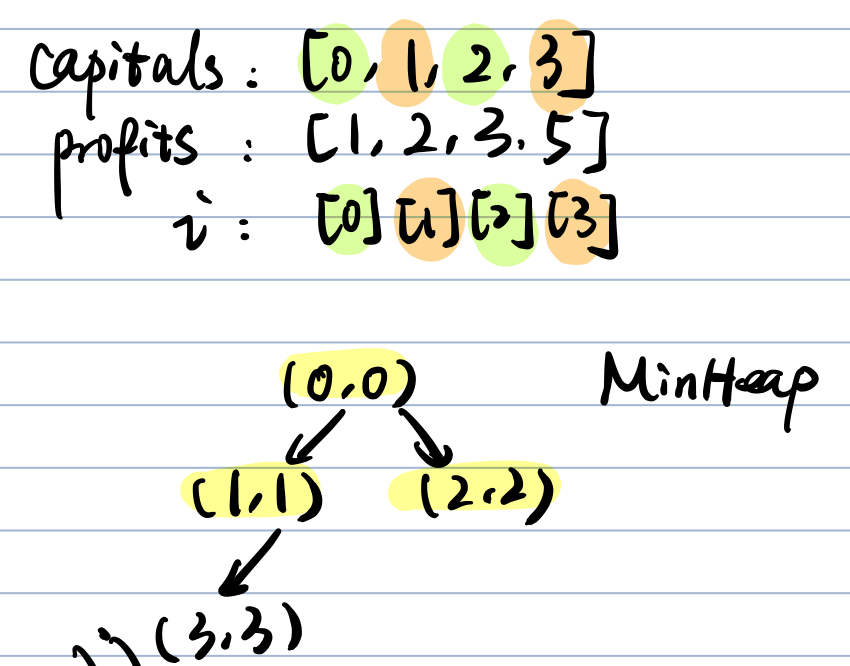 capitals: [0, 1, 2, 3]
profits: [1, 2, 3, 5]
i: [0] [1] [2] [3]
(0,0) MinHeap
(1,1) (2,2)
(3,3)